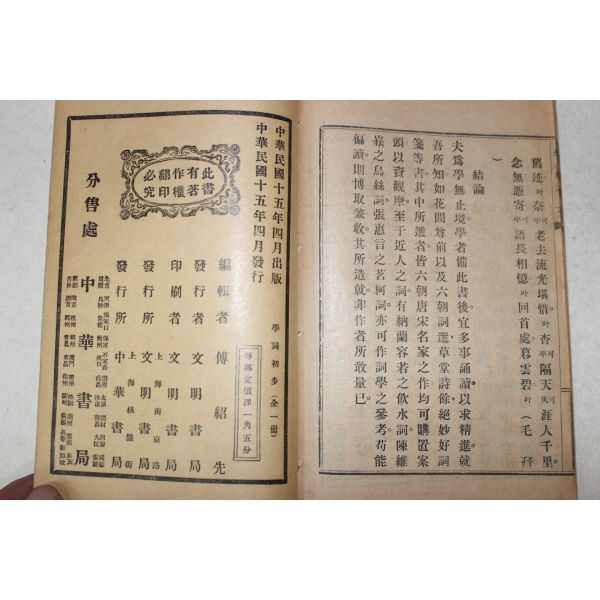 舊迹奈老去流光堪惜杳隔天涯人千里
念無憑寄語長相憶回首處暮雲碧(毛幵
)
結論
夫爲學無止境學者備此書後宜多事誦讀以求精進就
吾所知如花間尊前以及詞選草堂詩徐絕妙好詞
箋等書其中所選者皆六朝唐宋名家之作均可購置案
頭以資觀摩至于近人之詞有納蘭容若之飲水詞陳維
崧之烏絲詞張惠言之茗柯詞亦可作詞學之參考苟能
徧讀則博取兼收其所造就非作者所敢量已
中華民國十五年四月出版
中華民國十五年四月發行
學詞初步(全一冊)
每部定價洋一角五分
此書
有著
作權
翻印
必究
編輯者 傅紹先
發行者 文明書局
印刷者 文明書局
上海南京路
發行所 文明書局
上海棋盤街
發行所 中華書局
分售處 中華書局